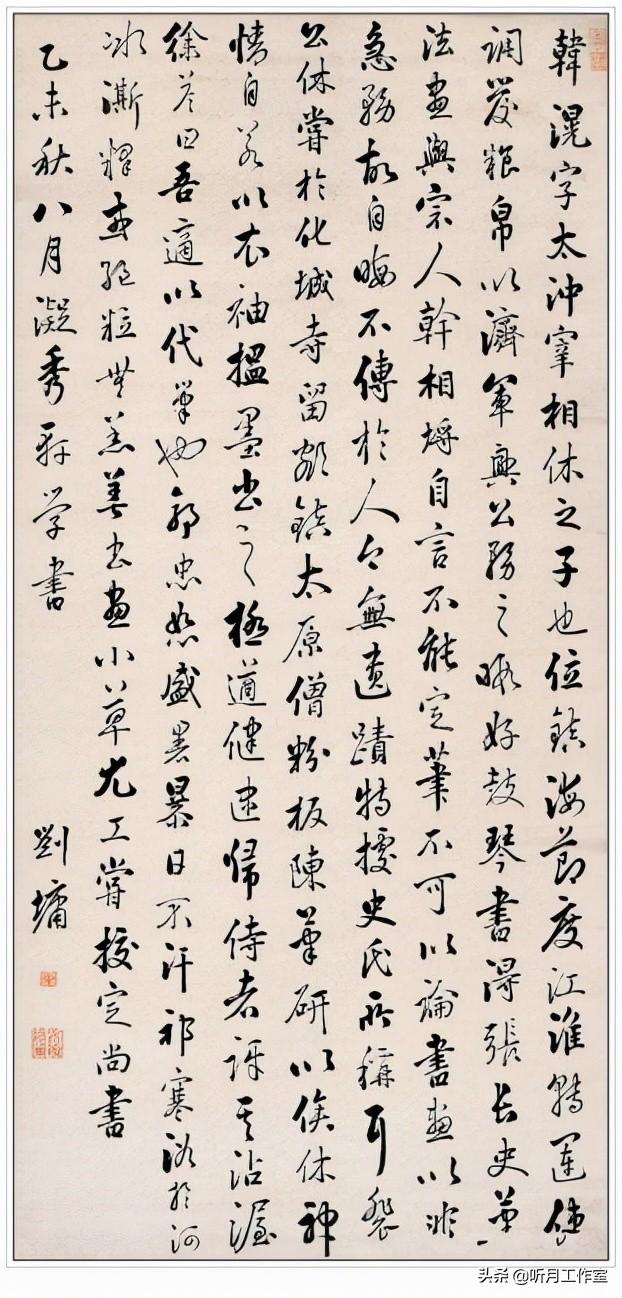 韓滉字太沖宰相休之子也位鎮海節度江淮轉運使
調發糧帛以濟軍興公務之暇好鼓琴書得張長史筆
法畫與宗人幹相埒自言不能定筆不可以論書畫以非
急務故自晦不傳於人今無遺蹟特據史氏所稱耳裴
公休嘗於化城寺留鎮太原僧粉板陳筆研以俟休神
情自若以衣袖揾墨書之極遒健逮歸侍者訝其沾渥
徐荅曰吾適以代筆也郭忠恕盛暑暴日不汗祁寒浴於河
冰澌釋或絕粒無恙善書畫小草尤工嘗校定尚書
乙未秋八月凝秀軒學書
劉墉
头条 @听月工作室